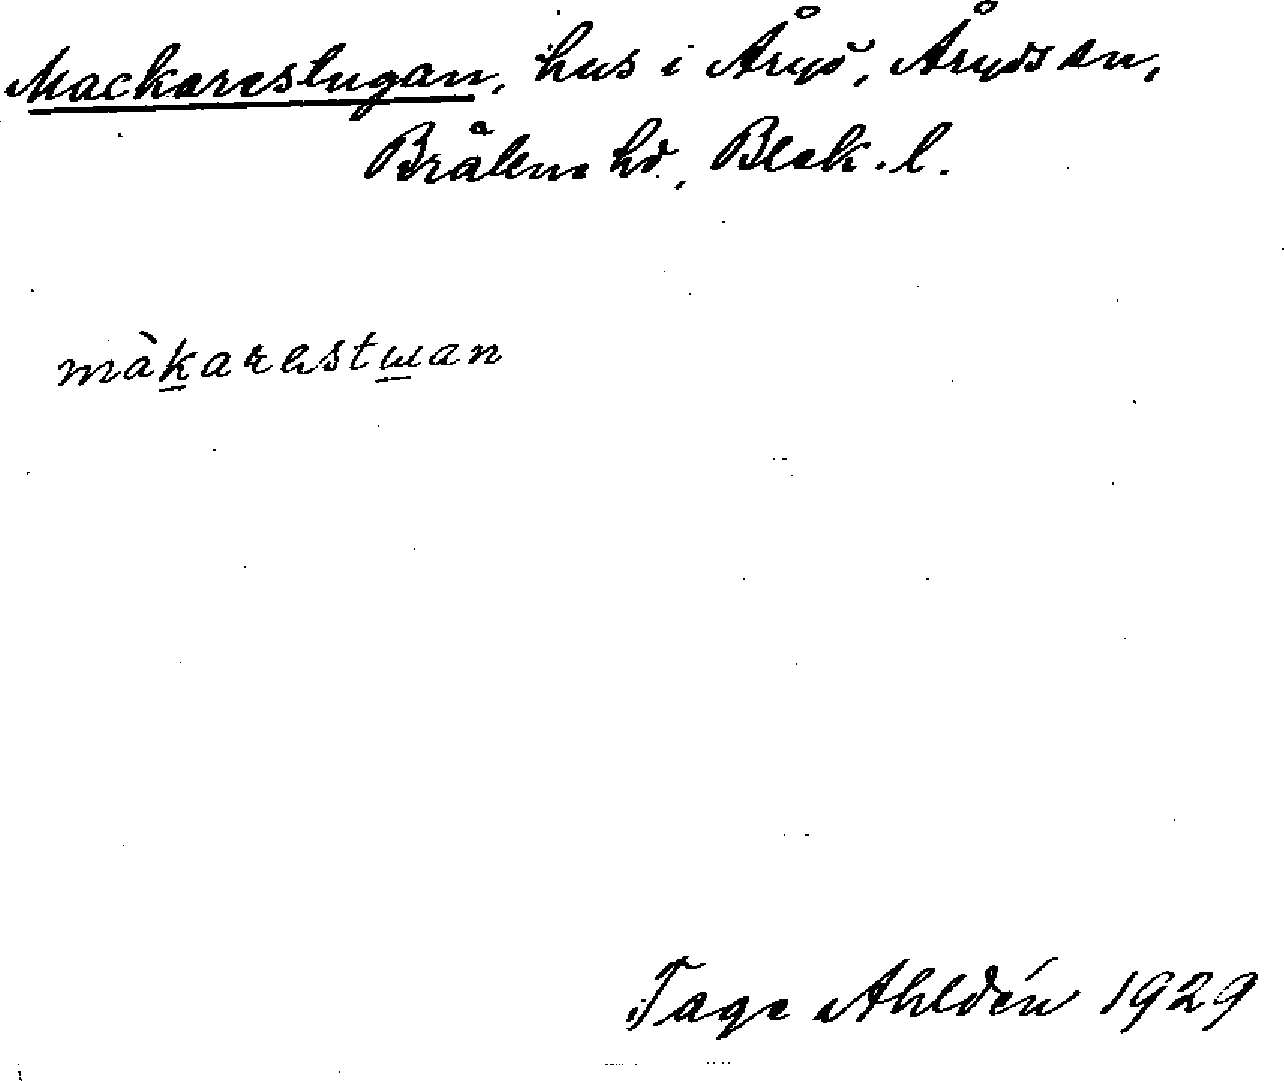 Mackarestugan, hus i Åryd, Åryds sn,
Bräkne hd, Blek. l.
màkarestɯan
Tage Ahldén 1929